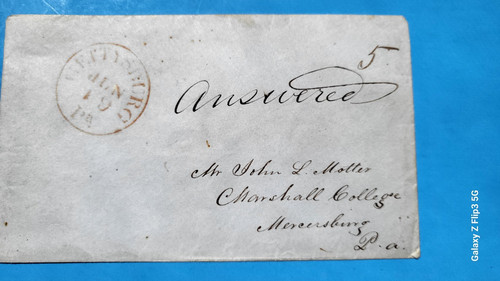 GETTYSBURG Pa
JUN
19
5
Answered
Mr John L. Motter
Marshall College
Mercersburg
P. a.
Galaxy Z Flip3 5G